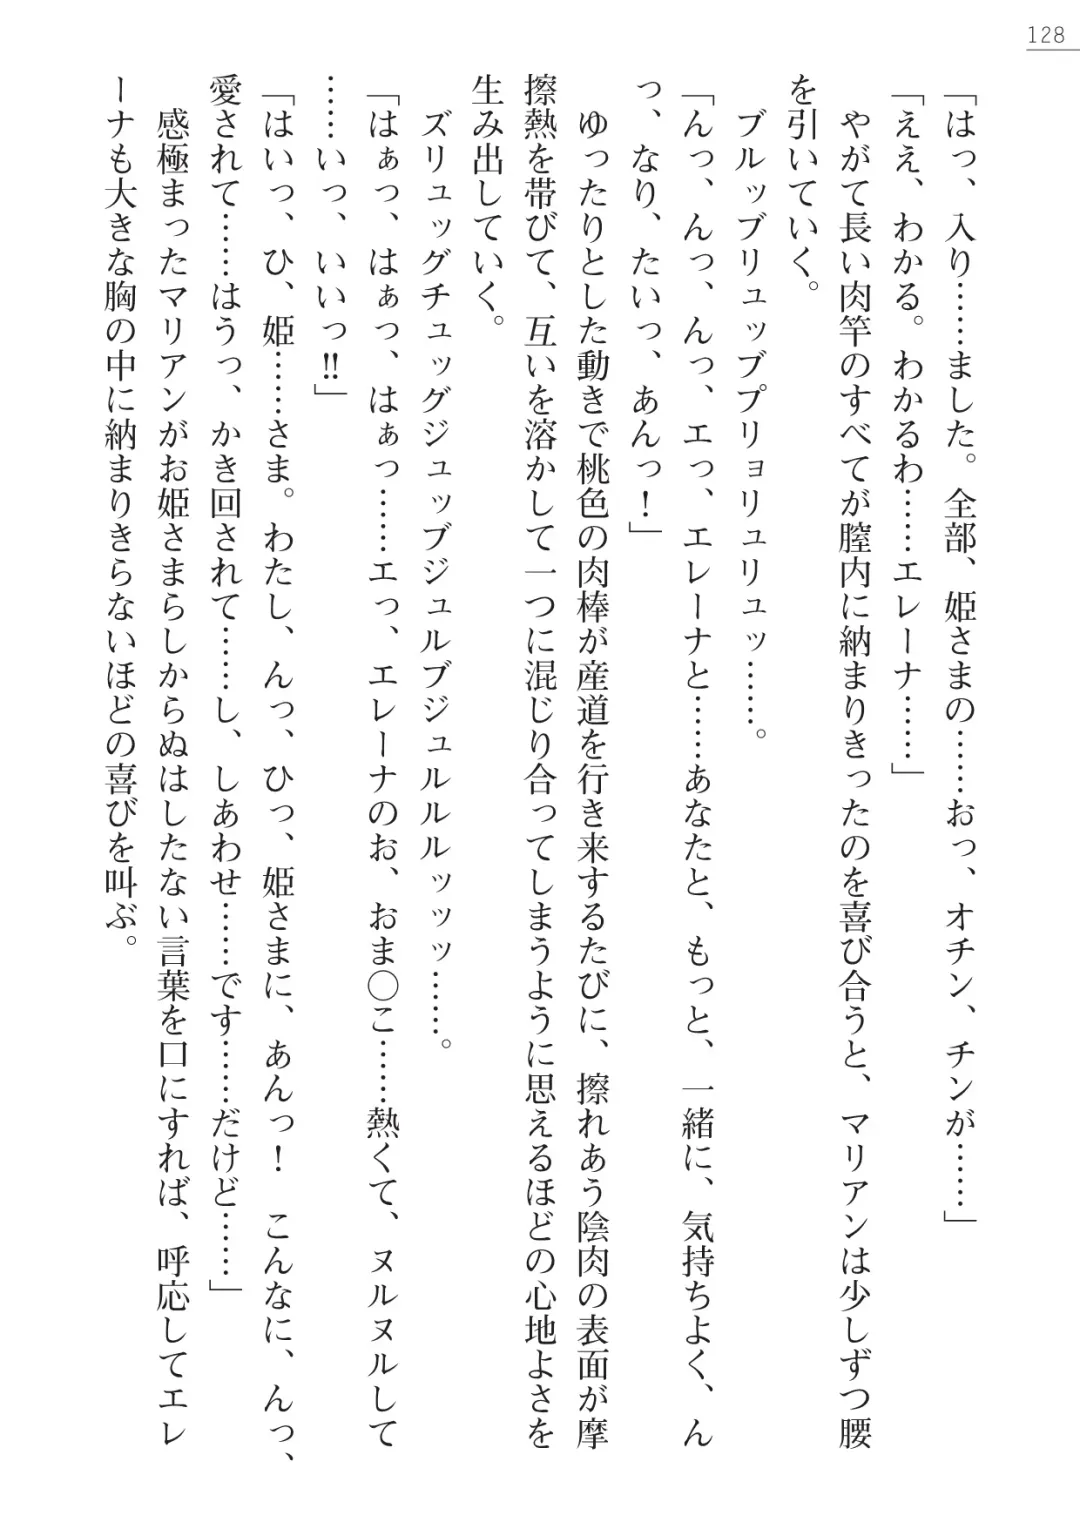 128
「はっ、入り……ました。全部、姫さまの……おっ、オチン、チンが……」
「ええ、わかる。わかるわ……エレーナ……」
　やがて長い肉竿のすべてが膣内に納まりきったのを喜び合うと、マリアンは少しずつ腰
を引いていく。
　ブルッブリュッブプリョリュリュッ……。
「んっ、んっ、んっ、エっ、エレーナと……あなたと、もっと、一緒に、気持ちよく、ん
っ、なり、たいっ、あんっ！」
　ゆったりとした動きで桃色の肉棒が産道を行き来するたびに、擦れあう陰肉の表面が摩
擦熱を帯びて、互いを溶かして一つに混じり合ってしまうように思えるほどの心地よさを
生み出していく。
　ズリュッグチュッグジュッブジュルブジュルルルッッッ……。
「はぁっ、はぁっ、はぁっ……エっ、エレーナのお、おま〇こ……熱くて、ヌルヌルして
……いっ、いいっ!!」
「はいっ、ひ、姫……さま。わたし、んっ、ひっ、姫さまに、あんっ！　こんなに、んっ、
愛されて……はうっ、かき回されて……し、しあわせ……です……だけど……」
　感極まったマリアンがお姫さまらしからぬはしたない言葉を口にすれば、呼応してエレ
ーナも大きな胸の中に納まりきらないほどの喜びを叫ぶ。